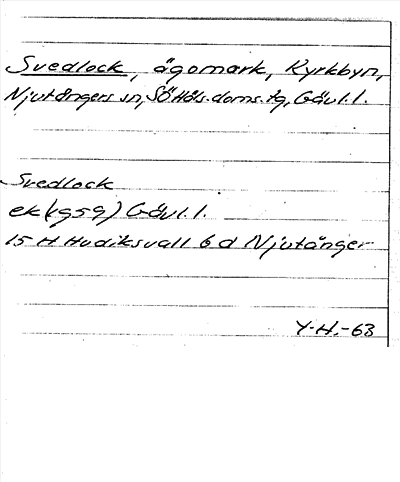 Svedlock, ägomark, Kyrkbyn,
Njutångers sn, SÖ Häls. doms. tg, Gävl. l.
Svedlock
ek (1959) Gävl. l.
15 H Hudiksvall 6 d Njutånger
Y-H.-63